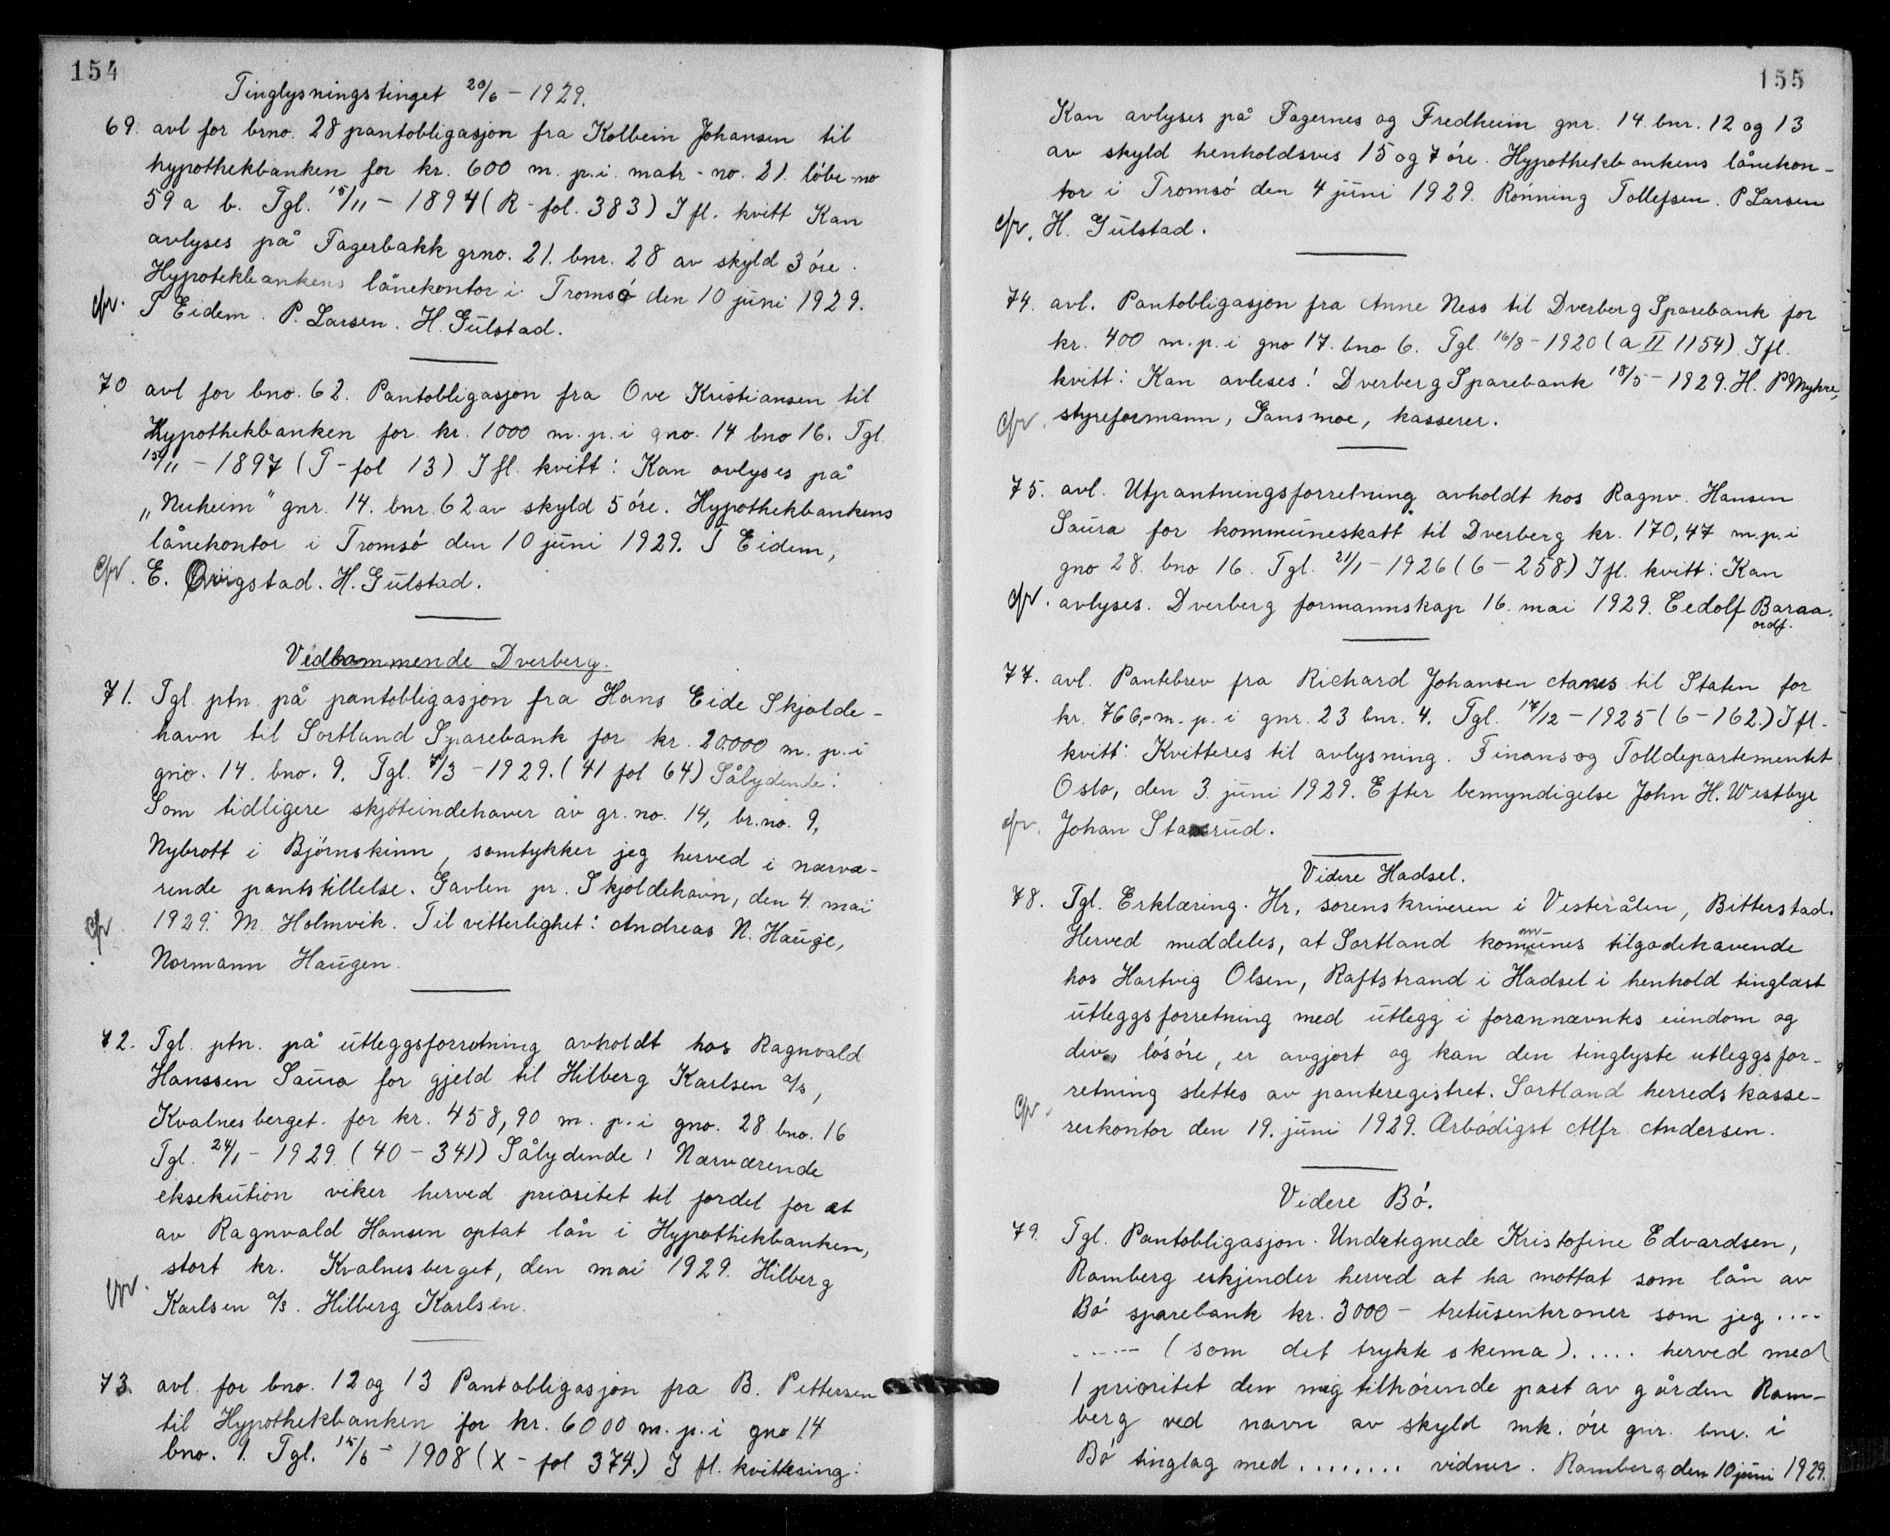 154
Tinglysningstinget 20/6 - 1929.
69. avl for brno. 28 pantobligasjon fra Kolbein Johansen til
hypothekbanken for kr. 600 m. p. i. matr - no. 21. löbe-no
59 a b. Tgl. 15/11 - 1894 (R - fol. 383) Ifl. kvitt Kan
avlyses på Fagerbakk grno. 21. bnr. 28 av skyld 3 öre.
Hypotekbankens lånekontor i Tromsö den 10 juni 1929.
cfr. T Eidem. P. Larsen. H. Gulstad.
70 avl for bno. 62. Pantobligasjon fra Ove Kristiansen til
Hypothekbanken for kr. 1000 m. p. i gno. 14 bno 16. Tgl.
15/11 - 1897 (T - fol 13) Ifl. kvitt: Kan avlyses på
„Nuheim" gnr. 14. bnr. 62 av skyld 5 öre. Hypothekbankens
lånekontor i Tromsö den 10 juni 1929. T Eidem,
cfr. E. Qvigstad. H. Gulstad.
Vedkommende Dverberg.
71. Tgl. ptn. på pantobligasjon fra Hans Eide Skjolde-
havn til Sortland Sparebank for kr. 20.000 m. p. i
gno. 14. bno. 9. Tgl. /3 - 1929. (41 fol 64) Sålydende:
Som tidligere skjöteindehaver av gr. no. 14, br. no. 9,
Nybrott i Björnskinn, samtykker jeg herved i nærvæ-
rende pantstillelse. Gavlen pr. Skjoldehavn, den 4. mai
cfr. 1929. M. Holmvik. Til vitterlighet: Andreas N. Hauge,
Normann Haugen.
72. Tgl. ptn. på utleggsforretning avholdt hos Ragnvald
Hanssen Saura for gjeld til Hilberg Karlsen a/s,
Kvalnesberget. for kr. 458,90 m. p. i gno. 28 bno. 16
Tgl. 24/1 - 1929. (40 - 341) Sålydende: Nærværende
eksekution viker herved prioritet til fordel for et
av Ragnvald Hansen optat lån i Hypothekbanken,
stort kr. Kvalnesberget, den mai 1929. Hilberg
cfr. Karlsen a/s. Hilberg Karlsen.
73. avl. for bno. 12 og 13 Pantobligasjon fra B. Pettersen
til Hypothekbanken for kr. 6000 m. p. i gno 14
bno. 9. Tgl. 15/6 - 1908 (X - fol 374.) I fl. kvittesing:
155
Kan avlyses på Fagernes og Fredheim gnr. 14. bnr. 12 og 13
av skyld henholdsvis 15 og 7 öre. Hypothekbankens lånekon-
tor i Tromsö den 4 juni 1929. Rönning Tollefsen. P Larsen
cfr. H. Gulstad.
74. avl. Pantobligasjon fra Anne Ness til Dverberg Sparebank for
kr. 400 m. p. i gno 17. bno 6. Tgl. 16/8 - 1920 (a II 1154) Ifl.
kvitt: Kan avleses! Dverberg Sparebank 18/5 - 1929. H. P Myhre,
cfr. styreformann, Gansmoe, kasserer.
75. avl. Utpantningsforretning avholdt hos Ragnv. Hansen
Saura for kommuneskatt til Dverberg kr. 170,47 m. p. i
gno 28. bno 16. Tgl. 21/1 - 1926 (6 - 258.) Ifl. kvitt: Kan
cfr. avlyses. Dverberg formannskap 16. mai 1929. Eedolf Baraa.
ordf.
77. avl. Pantebrev fra Richard Johansen Aanes til Staten for
kr. 766,- m. p. i gnr. 23 bnr. 4. Tgl. 17/12 - 1925 (6 - 162.) Ifl.
kvitt: Kvitteres til avlysning. Finans og Tolldepartementet
Oslo, den 3 juni 1929. Efter bemyndigelse John H. Westbye
cfr. Johan Stamsrud.
Videre Hadsel.
78. Tgl. Erklæring. Hr. sorenskriveren i Vesterålen, Bitterstad.
Herved meddeles, at Sortland komunes tilgodehavende
hos Hartvig Olsen, Raftstrand i Hadsel i henhold tinglæst
utleggsforretning med utlegg i forannævnts eiendom og
div. lösöre, er avgjort og kan den tinglyste utleggsfor-
retning slettes av panteregistret. Sortland herredskasse-
cfr. rerkontor den 19. juni 1929. Ærbödigst Alfr. Andersen.
Videre Bö.
79. Tgl. Pantobligasjon. Undertegnede Kristofine Edvardsen,
Ramberg erkjender herved at ha mottat som lån av
Bö sparebank kr. 3000 - tretusenkroner som jeg ....
..... (som det trykte skema)..... herved med
1 prioritet den mig tilhörende part av gården Ram-
berg ved navn av skyld mk. öre gnr. bnr. i
Bö tinglag med ........ vidner. Ramberg den 10 juni 1929.